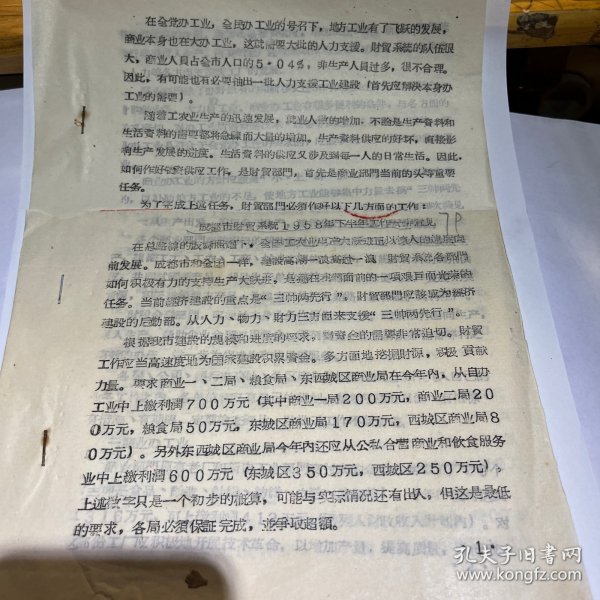 在全党办工业，全民办工业的号召下，地方工业有了飞跃的发展，
商业本身也在大办工业，这就需要大批的人力支援。财贸系统的队伍很
大，商业人员占全市人口的5·04%，非生产人员过多，很不合理。
因此，有可能也有必要抽出一批人力支援工业建设（首先应解决本身办
工业的需要）。
随着工农业生产的迅速发展，就业人数的增加，不论是生产资料和
生活资料的需要都将急剧而大量的增加。生产资料供应的好坏，直接影
响生产发展的进度。生活资料的供应又涉及到每一人的日常生活。因此，
如何作好物资供应工作，是财贸部门，首先是商业部门当前的头等重要
任务。
为了完成上述任务，财贸部门必须作好以下几方面的工作：
成都市财贸系统1958年下半年工作
7P
在总路线的光辉照耀下，全国工农业生产大跃进以惊人的速度向
前发展。成都市和全国一样，建设高潮一浪高过一浪。财贸系统各部门
如何积极有力的支持生产大跃进，是摆在我们面前的一项艰巨而光荣的
任务。当前经济建设的重点是“三帅两先行”，财贸部門应該成为经济
建設的后勤部。从人力、物力、財力三方面来支援“三帅两先行”。
根据我市建設的規模和进度的要求，对资金的需要非常迫切。財貿
工作应当高速度地为国家建設积累資金。多方面地挖掘財源，积极貢献
力量。要求商业一、二局、粮食局、东西城区商业局在今年內，从自办
工业中上繳利潤700万元（其中商业一局200万元，商业二局20
0万元，粮食局50万元，东城区商业局170万元，西城区商业局8
0万元）。另外东西城区商业局今年內还应从公私合营商业和飲食服务
业中上繳利潤600万元（东城区350万元，西城区250万元）。
上述数字只是一个初步的估算，可能与实际情况还有出入，但这是最低
的要求，各局必須保証完成，並爭取超額。
1·
孔夫子旧书网
www.kongfz.com